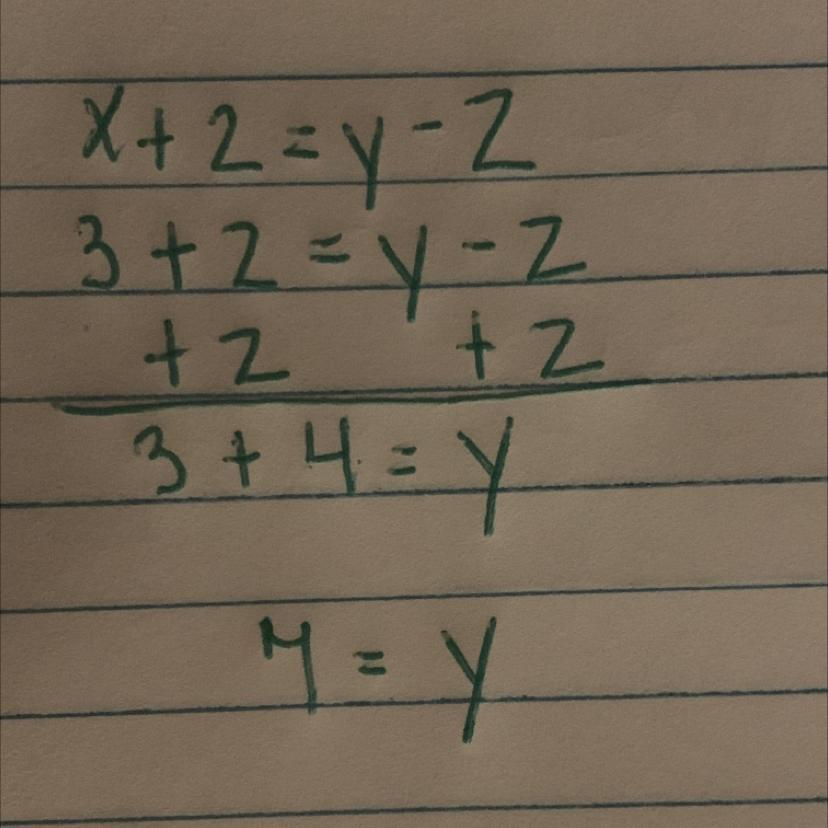 x + 2 = y - 2
3 + 2 = y - 2
+ 2 + 2
3 + 4 = y
7 = y